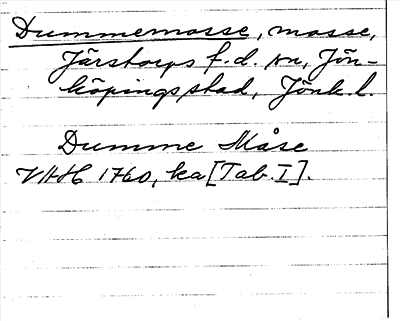 Dummemosse, mosse,
Järstorps f.d. sn, Jön-
köpings stad, Jönk. l.
Dumme Måse
VHH 1760, ka [Tab. I].